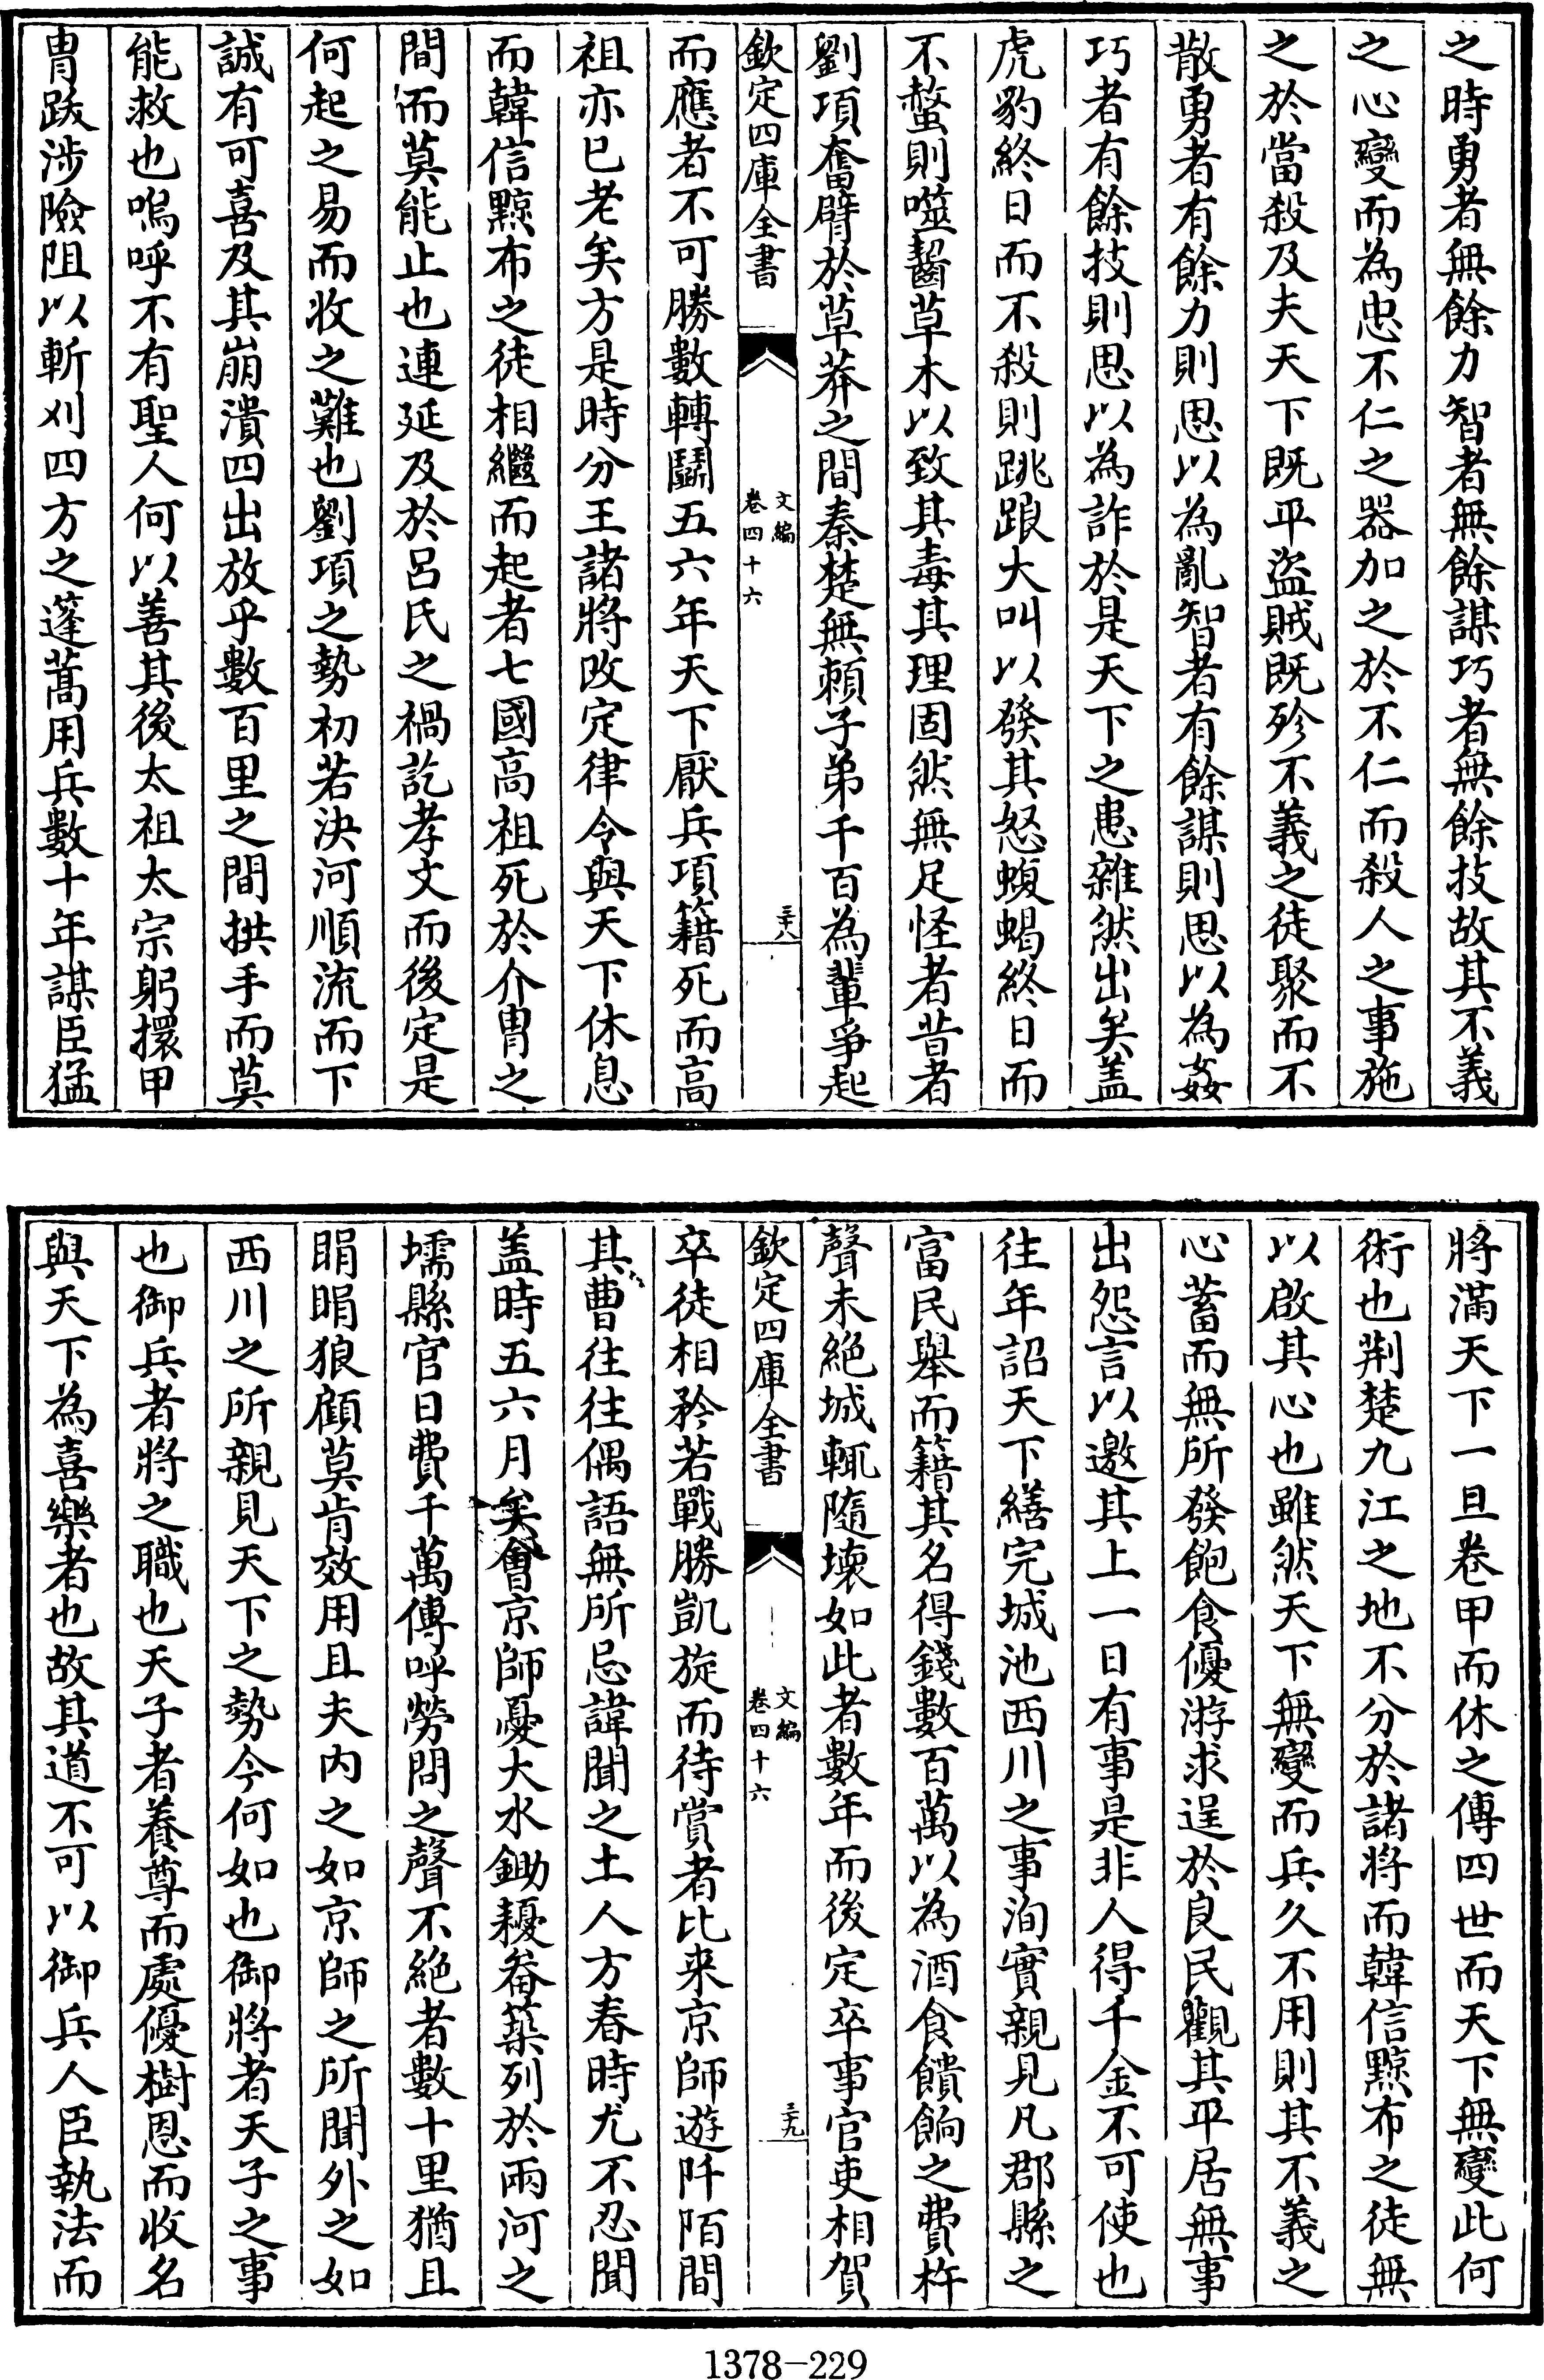 之時勇者無餘力智者無餘謀巧者無餘技故其不義
之心變而為忠不仁之器加之於不仁而殺人之事施
之於當殺及夫天下既平盜賊既殄不義之徒聚而不
散勇者有餘力則思以為亂智者有餘謀則思以為姦
巧者有餘技則思以為詐於是天下之患雜然出矣盖
虎豹終日而不殺則跳踉大叫以發其怒蝮蝎終日而
不螫則噬齧草木以致其毒其理固然無足怪者昔者
劉項奮臂於草莽之間秦楚無賴子弟千百為輩爭起
欽定四庫全書
文編
卷四十六
三十八
而應者不可勝數轉鬭五六年天下厭兵項籍死而高
祖亦已老矣方是時分王諸將改定律令與天下休息
而韓信黥布之徒相繼而起者七國高祖死於介胄之
間而莫能止也連延及於呂氏之禍訖孝文而後定是
何起之易而收之難也劉項之勢初若決河順流而下
誠有可喜及其崩潰四出放乎數百里之間拱手而莫
能救也嗚呼不有聖人何以善其後太祖太宗躬擐甲
胄跋涉險阻以斬刈四方之蓬蒿用兵數十年謀臣猛
將滿天下一旦卷甲而休之傳四世而天下無變此何
術也荆楚九江之地不分於諸將而韓信黥布之徒無
以啟其心也雖然天下無變而兵久不用則其不義之
心蓄而無所發飽食優游求逞於良民觀其平居無事
出怨言以邀其上一日有事是非人得千金不可使也
往年詔天下繕完城池西川之事洵實親見凡郡縣之
富民舉而籍其名得錢數百萬以為酒食饋餉之費杵
聲未絕城輒隨壞如此者數年而後定卒事官吏相賀
欽定四庫全書
文編
卷四十六
三十九
卒徒相矜若戰勝凱旋而待賞者比来京師遊阡陌間
其曹往往偶語無所忌諱聞之土人方春時尤不忍聞
盖時五六月矣會京師憂大水鋤耰畚築列於兩河之
壖縣官日費千萬傳呼勞問之聲不絕者數十里猶且
睊睊狼顧莫肯效用且夫内之如京師之所聞外之如
西川之所親見天下之勢今何如也御將者天子之事
也御兵者將之職也天子者養尊而處優樹恩而收名
與天下為喜樂者也故其道不可以御兵人臣執法而
1378-229